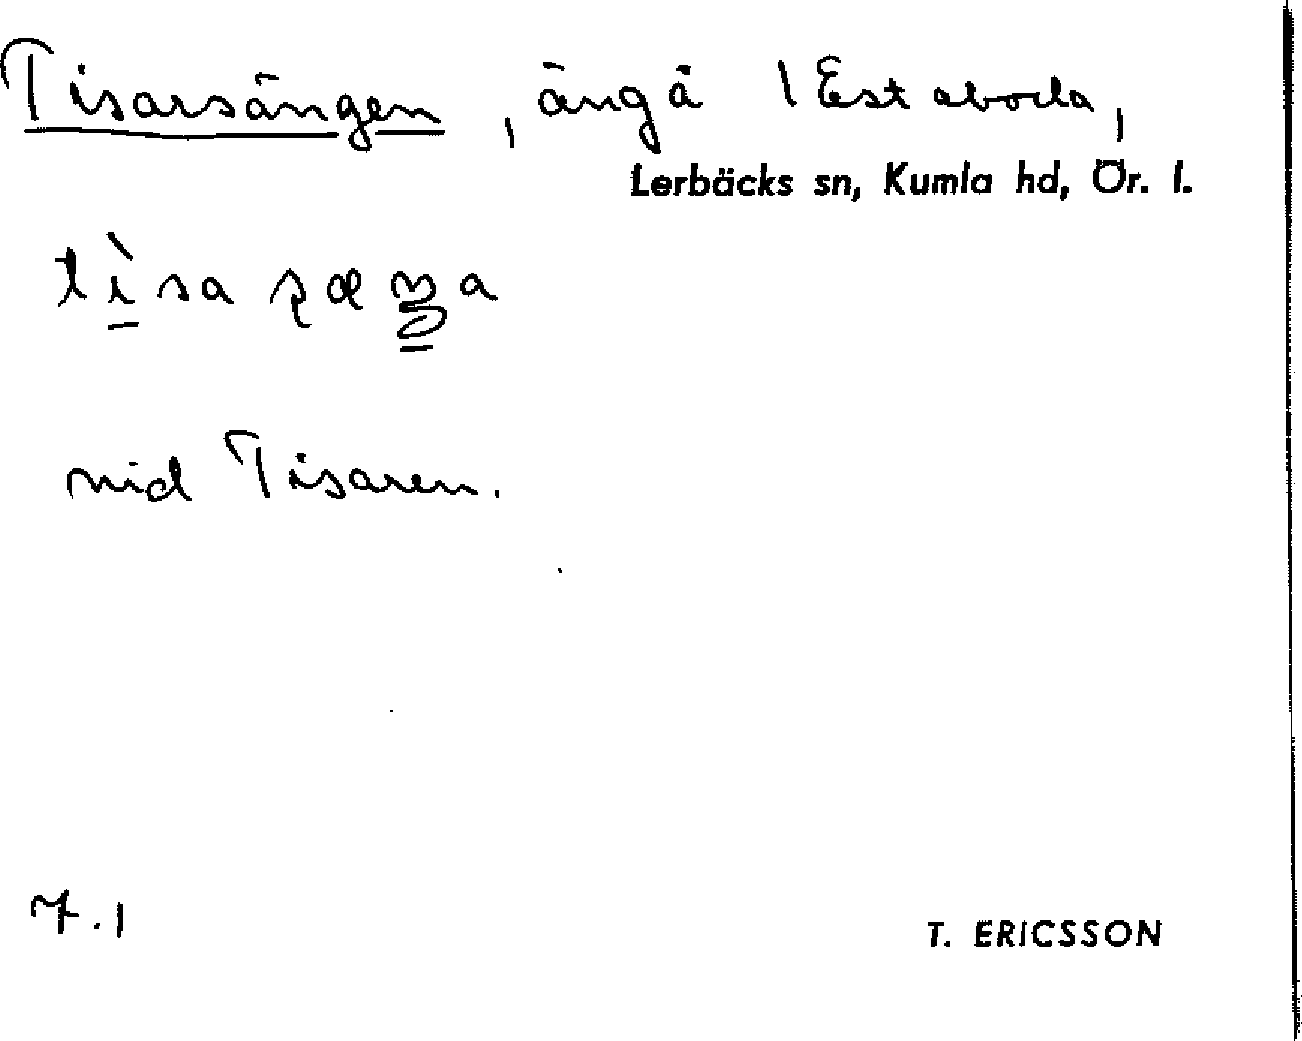 Tisarsängen, ängå i Estaboda,
Lerbäcks sn, Kumla hd, Ör. l.
vid Tisaren.
7.1
T. ERICSSON